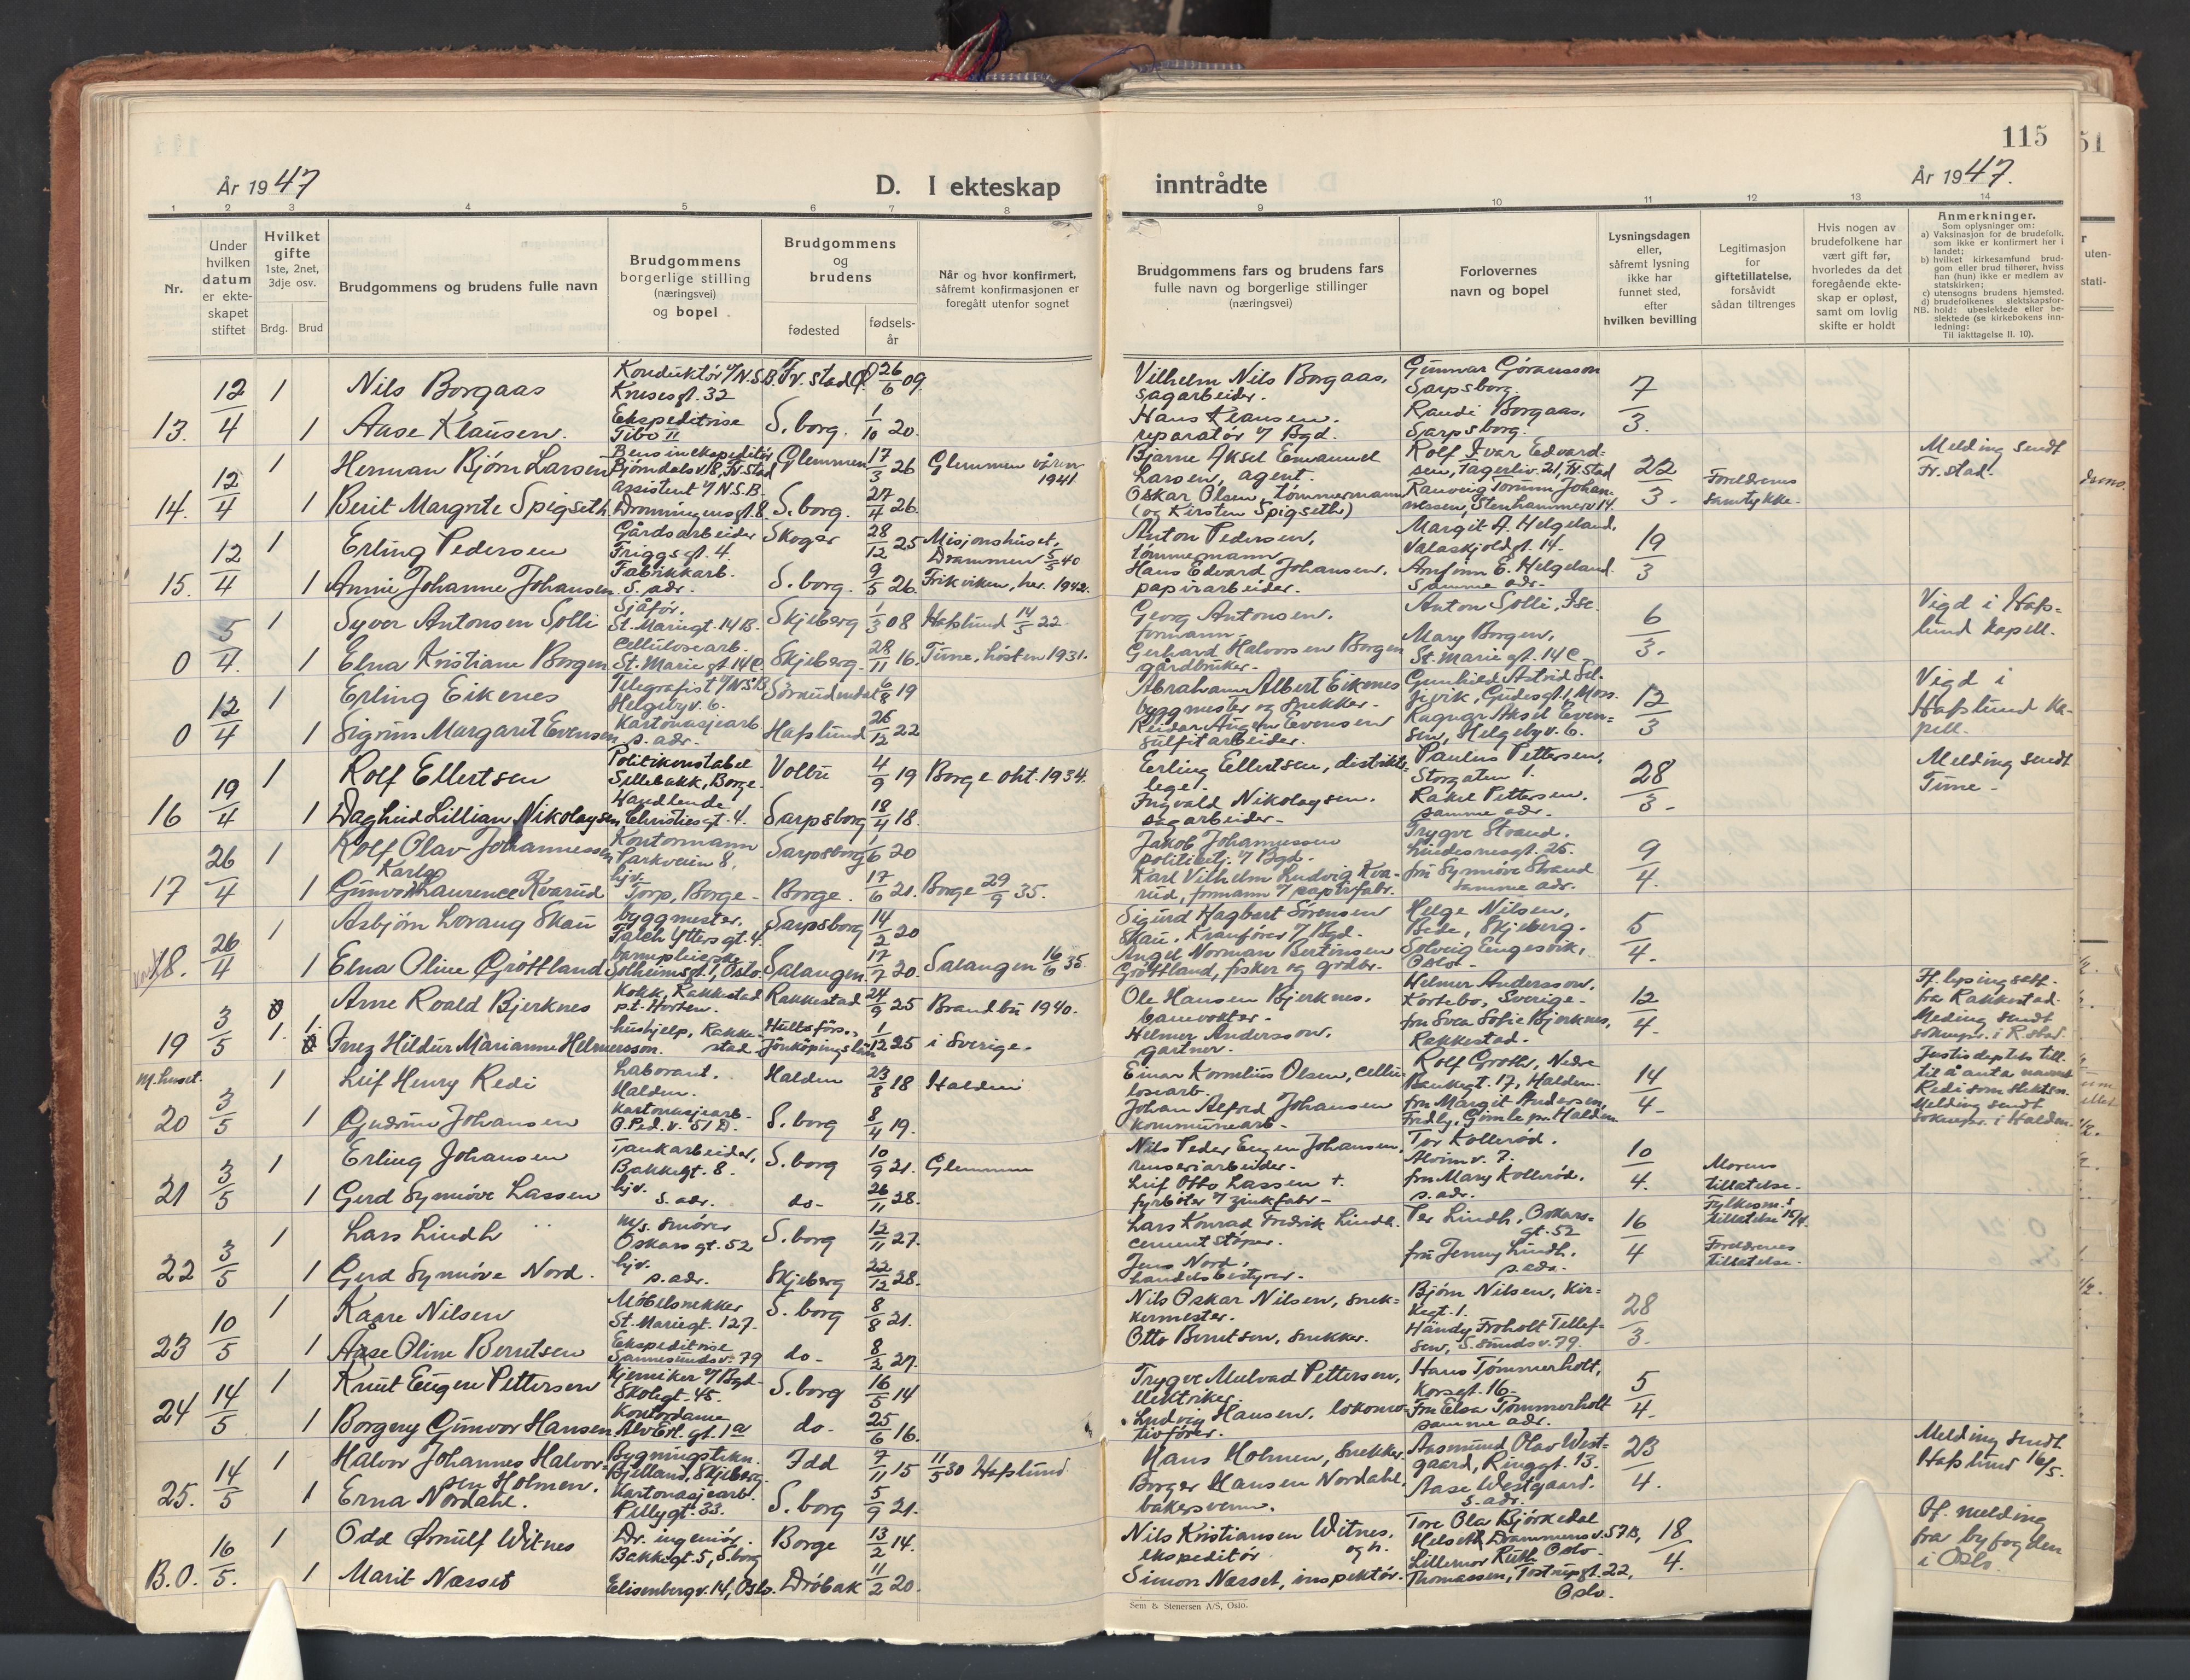 115
År 1947
D. I ekteskap inntrådte
År 1947.
1 2 3 4 5 6 7 8 9 10 11 12 13 14
Nr.
Under hvilken datum er ekte-skapet stiftet
Hvilket gifte 1ste, 2net, 3dje osv.
Brdg. Brud
Brudgommens og brudens fulle navn
Brudgommens borgerlige stilling (næringsvei) og bopel
Brudgommens og brudens
fødested
fødsels-år
Når og hvor konfirmert, såfremt konfirmasjonen er foregått utenfor sognet
Brudgommens fars og brudens fars fulle navn og borgerlige stillinger (næringsvei)
Forlovernes navn og bopel
Lysningsdagen eller, såfremt lysning ikke har funnet sted, efter hvilken bevilling
Legitimasjon for giftetillatelse, forsåvidt sådan tiltrenges
Hvis nogen av brudefolkene har vært gift før, hvorledes da det foregående ekte-skap er opløst, samt om lovlig skifte er holdt
Anmerkninger.
Som oplysninger om:
a) Vaksinasjon for de brudefolk, som ikke er konfirmert her i landet;
b) hvilket kirkesamfund brud-gom eller brud tilhører, hviss han (hun) ikke er medlem av statskirken;
c) utensogns brudens hjemsted.
d) brudefolkenes slektskapsfor-hold: ubeslektede eller be-slektede (se kirkebokens inn-ledning:
NB.
Til iakttagelse II. 10).
13. 12/4 1 Nils Borgaas Konduktør v/N.S.B. Kruses gt. 32 Fr.stad 26/6 09 Vilhelm Nils Borgaas, sagarbeider. Gunnar Göransson Sarpsborg. 7/3.
1 Aase Klausen. Ekspeditrise Tibo II S.borg. 1/10 20. Hans Klausen. reparatör v/ Bgd. Randi Borgaas, Sarpsborg.
14. 12/4 1 Herman Bjørn Larsen Bensinekspeditør Bjørndalsv. 18, Fr.stad Glemmen 17/3 26 Glemmen våren 1941. Bjarne Aksel Emanuel Larsen, agent. Rolf Ivar Edvardsen, Fagerliv. 21, Fr.stad 22/3. Foreldrenes samtykke. Melding sendt Fr.stad.
1 Berit Margrete Spigseth. assistent v/N.S.B. Dronningensgt. 8. S.borg. 27/4 26. Oskar Olsen, tømmermann (og Kirsten Spigseth) Ranveig Torunn Johannessen, Stenhammerv. 14.
15. 12/4 1 Erling Pedersen Gårdsarbeider Friggsgt. 4. Skoger 28/12 25 Misjonshuset, Drammen 5/5 40 Anton Pedersen, tømmermann Margit A. Helgeland, Valaskjoldgt. 14. 19/3
1 Annie Johanne Johansen Fabrikkarb. S. adr. S.borg. 9/5 26. Frikirken, her. 1942. Hans Edvard Johansen, papirarbeider. Arnfinn E. Helgeland. samme adr.
0 5/4. 1 Syver Antonsen Solli Sjåfør. St. Mariegt. 14 B. Skjeberg 1/3 08 Hafslund 14/5 22. Georg Antonsen. formann. Anton Solli, Ise. 6/3. Vigd i Hafslund kapell.
1 Elna Kristiane Borgen Cellulosearb. St. Mariegt. 14 C. Skjeberg. 28/11 16. Tune, høsten 1931. Gerhard Halvorsen Borgen gårdbruker. Mary Borgen, St. Marie gt. 14 C.
0 12/4 1 Erling Eikenes Telegrafist v/NSB Helgebyv. 6. 6/8 19 Abraham Albert Eikenes byggmester og snekker. Gudesgt. 1, Moss. 12/3 Vigd i Hafslund Kapell.
1 Sigrun Margaret Evensen Kartonasjearb. s. adr. Hafslund 26/12 22 Reidar Evensen sulfitarbeider. Ragnar Aksel Evensen, Helgebyv. 6.
16 19/4 1 Rolf Ellertsen Politikonstabel Sellebakk, Borge. Volbu 4/9 19 Borge okt. 1934. Erling Ellertsen, distriktslege. Paulus Pettersen, Storgaten 1. 28/3. Melding sendt Tune.
1 Daghild Lillian Nikolaysen Handlende Christiesgt. 4. Sarpsborg 18/4 18. Ingvald Nikolaysen. sagarbeider. Rakel Pettersen. samme adr.
17 26/4 1 Rolf Olav Johannessen Kontormann Parkveien 8. Sarpsborg 1/6 20 Jakob Johannessen politibetj. v/ Bgd. Trygve Strand. Lindesnesgt. 25. 9/4.
1 Gunvor Karla Laurence Kvarud hjv. Torp, Borge. Borge. 17/6 21. Borge 29/9 35. Karl Vilhelm Ludvig Kvarud, formann v/ papirfabr. fru Synnøve Strand samme adr.
18. 26/4 1 Asbjørn Lorang Skau byggmester. Falch Yttersgt. 4. Sarpsborg 14/2 20 Sigurd Hagbart Sørensen Skau, Kranfører v/ Bgd. Helge Nilsen, Skjeberg. 5/4.
1 Elna Oline Grøttland barnepleierske Solheimsgt. 1, Oslo. Salangen. 17/7 20. Salangen 16/6 35. Angel Norman Bertinsen Grøttland, fisker og grdbr. Solveig Engesvik, Oslo.
19 3/5 1. Arne Roald Bjerknes Kokk, Rakkestad p.t. Horten. Rakkestad 24/9 25 Brandbu 1940. Ole Hansen Bjerknes. banevokter. Helmer Andersson, Kortebo, Sverige. 12/4. Ff. lysing satt. fra Rakkestad. Melding sendt sokneprs. i R.stad.
1. Inez Hildur Marianne Helmersson. hushjelp, Rakkestad Jönköpings län 1/12 25 i Sverige. Helmer Andersson, gartner. fru Svea Sofie Bjerknes, Rakkestad.
M.huset.
20 3/5 1 Leif Henry Redi Laborant. Halden. Halden 23/8 18 Halden Einar Kornelius Olsen, cellulosearb. Rolf Groth, Nedre Bankegt. 17, Halden. 14/4. Justisdeptets till. til å anta navnet Redi som slektsn. Melding sendt sokneprs. i Halden.
1 Gudrun Johansen Kartonasjearb. O.Ped.v. 51 D. S.borg 8/4 19. Johan Alfred Johansen kommunearb. fru Margit Andersen, Fredly, Gimle pr. Halden
21 3/5 1 Erling Johansen Tankarbeider, Bakkegt. 8. S.borg 10/9 21. Glemmen Nils Peder Eugen Johansen, renseriarbeider. Tor Kollerød. Alvimv. 7. 10/4. Morens tillatelse.
1 Gerd Synnöve Lassen hjv. s. adr. do. 26/11 28. Leif Otto Lassen †. fyrbøter v/ zinkfabr. fru Mary Kollerød. s. adr. Fylkesm.s tillatelse 15/4.
22 3/5 1 Lars Lindh m/s. smører Oskarsgt. 52 S.borg 12/11 27. Lars Konrad Fredrik Lindh. cementstøper. Per Lindh, Oskarsgt. 52 16/4 Foreldrenes tillatelse.
1 Gerd Synnöve Nord. hjv. s. adr. Skjeberg 22/12 28. Jens Nord, handelsbestyrer. fru Jenny Lindh. s. adr.
23 10/5 1 Kaare Nilsen Møbelsnekker St. Mariegt. 127. S.borg 8/8 21. Nils Oskar Nilsen, snekkermester. Bjørn Nilsen, Kirkegt. 1. 28/3.
1 Aase Oline Berntsen Ekspeditrise Sannesundsv. 79 do. 8/2 27. Otto Berntsen, snekker. Händy Froholt Tellefsen, S.sundsv. 79.
24 14/5 1 Knut Eugen Pettersen Kjemiker v/ Bgd. Skolegt. 45. S.borg 16/5 14 Trygve Mulvad Pettersen, elektriker. Hans Tømmerholt, Korsgt. 16. 5/4.
1 Borgery Gunvor Hansen Kontordame Alv Erl. gt. 1a do. 25/6 16. Ludvig Hansen. lokomotivfører. Fru Elsa Tømmerholt samme adr.
25. 14/5 1 Halvor Johannes Halvorsen Holmen. Bygningstekn. Bjelland, Skjeberg. Idd 7/11 15 11/5 30 Hafslund Hans Holmen, Snekker. Aasmund Olav Westgaard, Ringgt. 13. 23/4. Melding sendt Hafslund 16/5.
1 Erna Nordahl. Kartonasjearb. Pellygt. 33. S.borg 5/9 21. Borger Hansen Nordahl, bakersvenn. Aase Westgaard. s. adr.
B.O. 16/5. 1 Odd Arnulf Witnes Dr. ingeniør. Bakkegt. 5, S.borg Borge 13/2 14. Nils Kristiansen Witnes. ekspeditör og h. Tore Ola Bjørkedal Helseth, Drammensv. 57 B, Oslo. 18/4. Ff. melding fra byfogden i Oslo.
1 Marit Næsset Elisenbergv. 14, Oslo. Drøbak 11/2 20. Simon Næsset, inspektør. Lillemor Ruth Thomassen, Tostrupgt. 22, Oslo.
Sem & Stenersen A/S, Oslo.